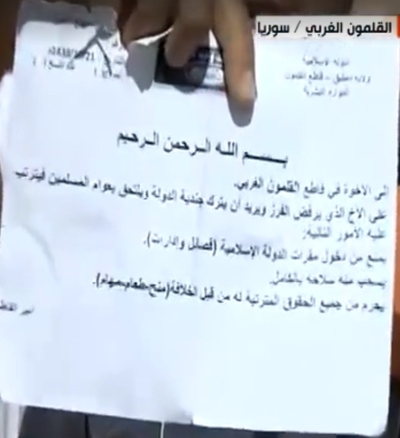 القلمون الغربي / سوريا
الدولة الإسلامية
ولاية دمشق - قاطع القلمون
الموارد البشرية
بسم الله الرحمن الرحيم
إلى الأخوة في قاطع القلمون الغربي.
على الأخ الذي يرفض الفرز ويريد أن يترك جندية الدولة ويلتحق بعوام المسلمين فيترتب
عليه الأمور التالية:
يمنع من دخول مقرات الدولة الإسلامية (فصائل وإدارات).
يسحب منه سلاحه بالكامل.
يحرم من جميع الحقوق المترتبة له من قبل الخلافة(منح-طعام-مهام).
أمير القاطع